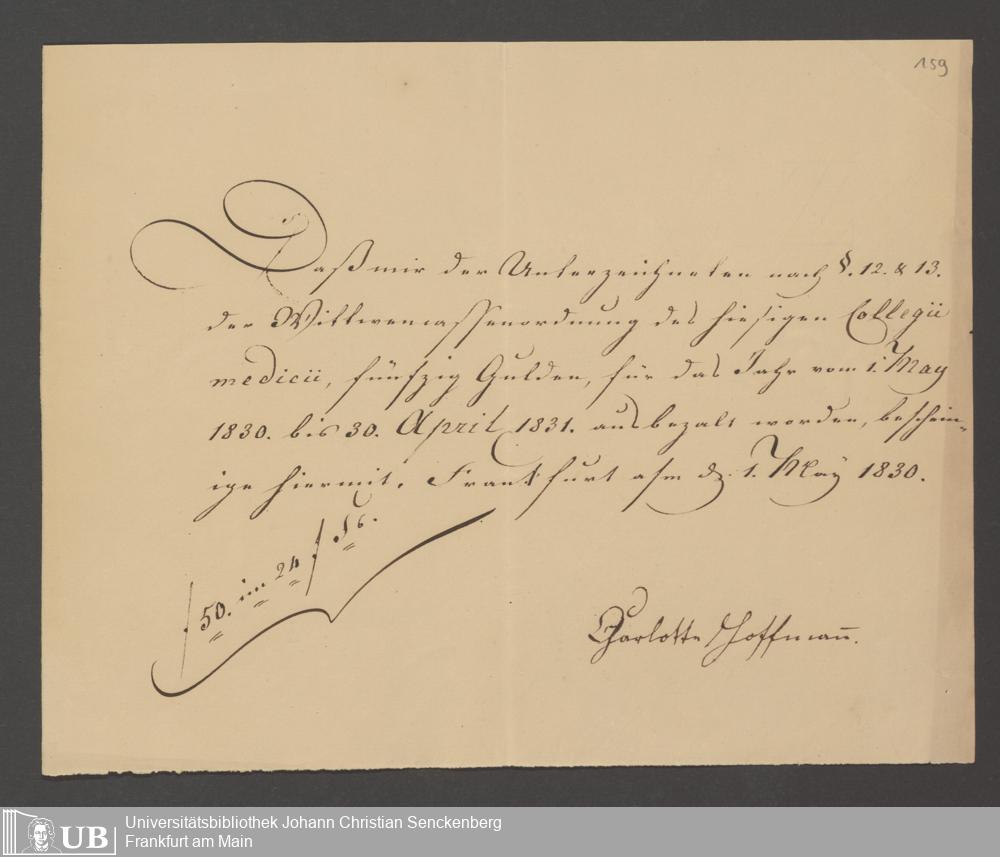 159
Daß mir der Unterzeichneten nach §. 12. & 13.
der Wittwencassenordnung des hiesigen Collegii
medicii, fünfzig Gulden, für das Jahr vom 1. May
1830. bis 30. April 1831. ausbezalt worden, beschein-
ige hiermit. Frankfurt a/m d. 1. May 1830.
f 50. im 24 f
Charlotte Hoffmann.
UB Universitätsbibliothek Johann Christian Senckenberg
Frankfurt am Main